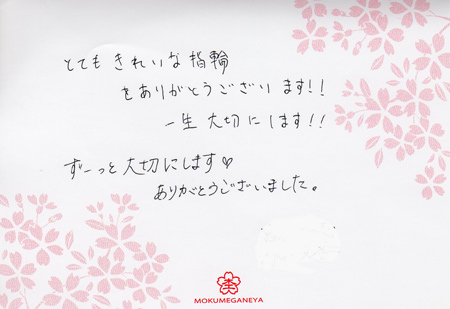 とてもきれいな指輪
をありがとうございます!!
一生大切にします!!
ずーっと大切にします♡
ありがとうございました。
MOKUMEGANEYA